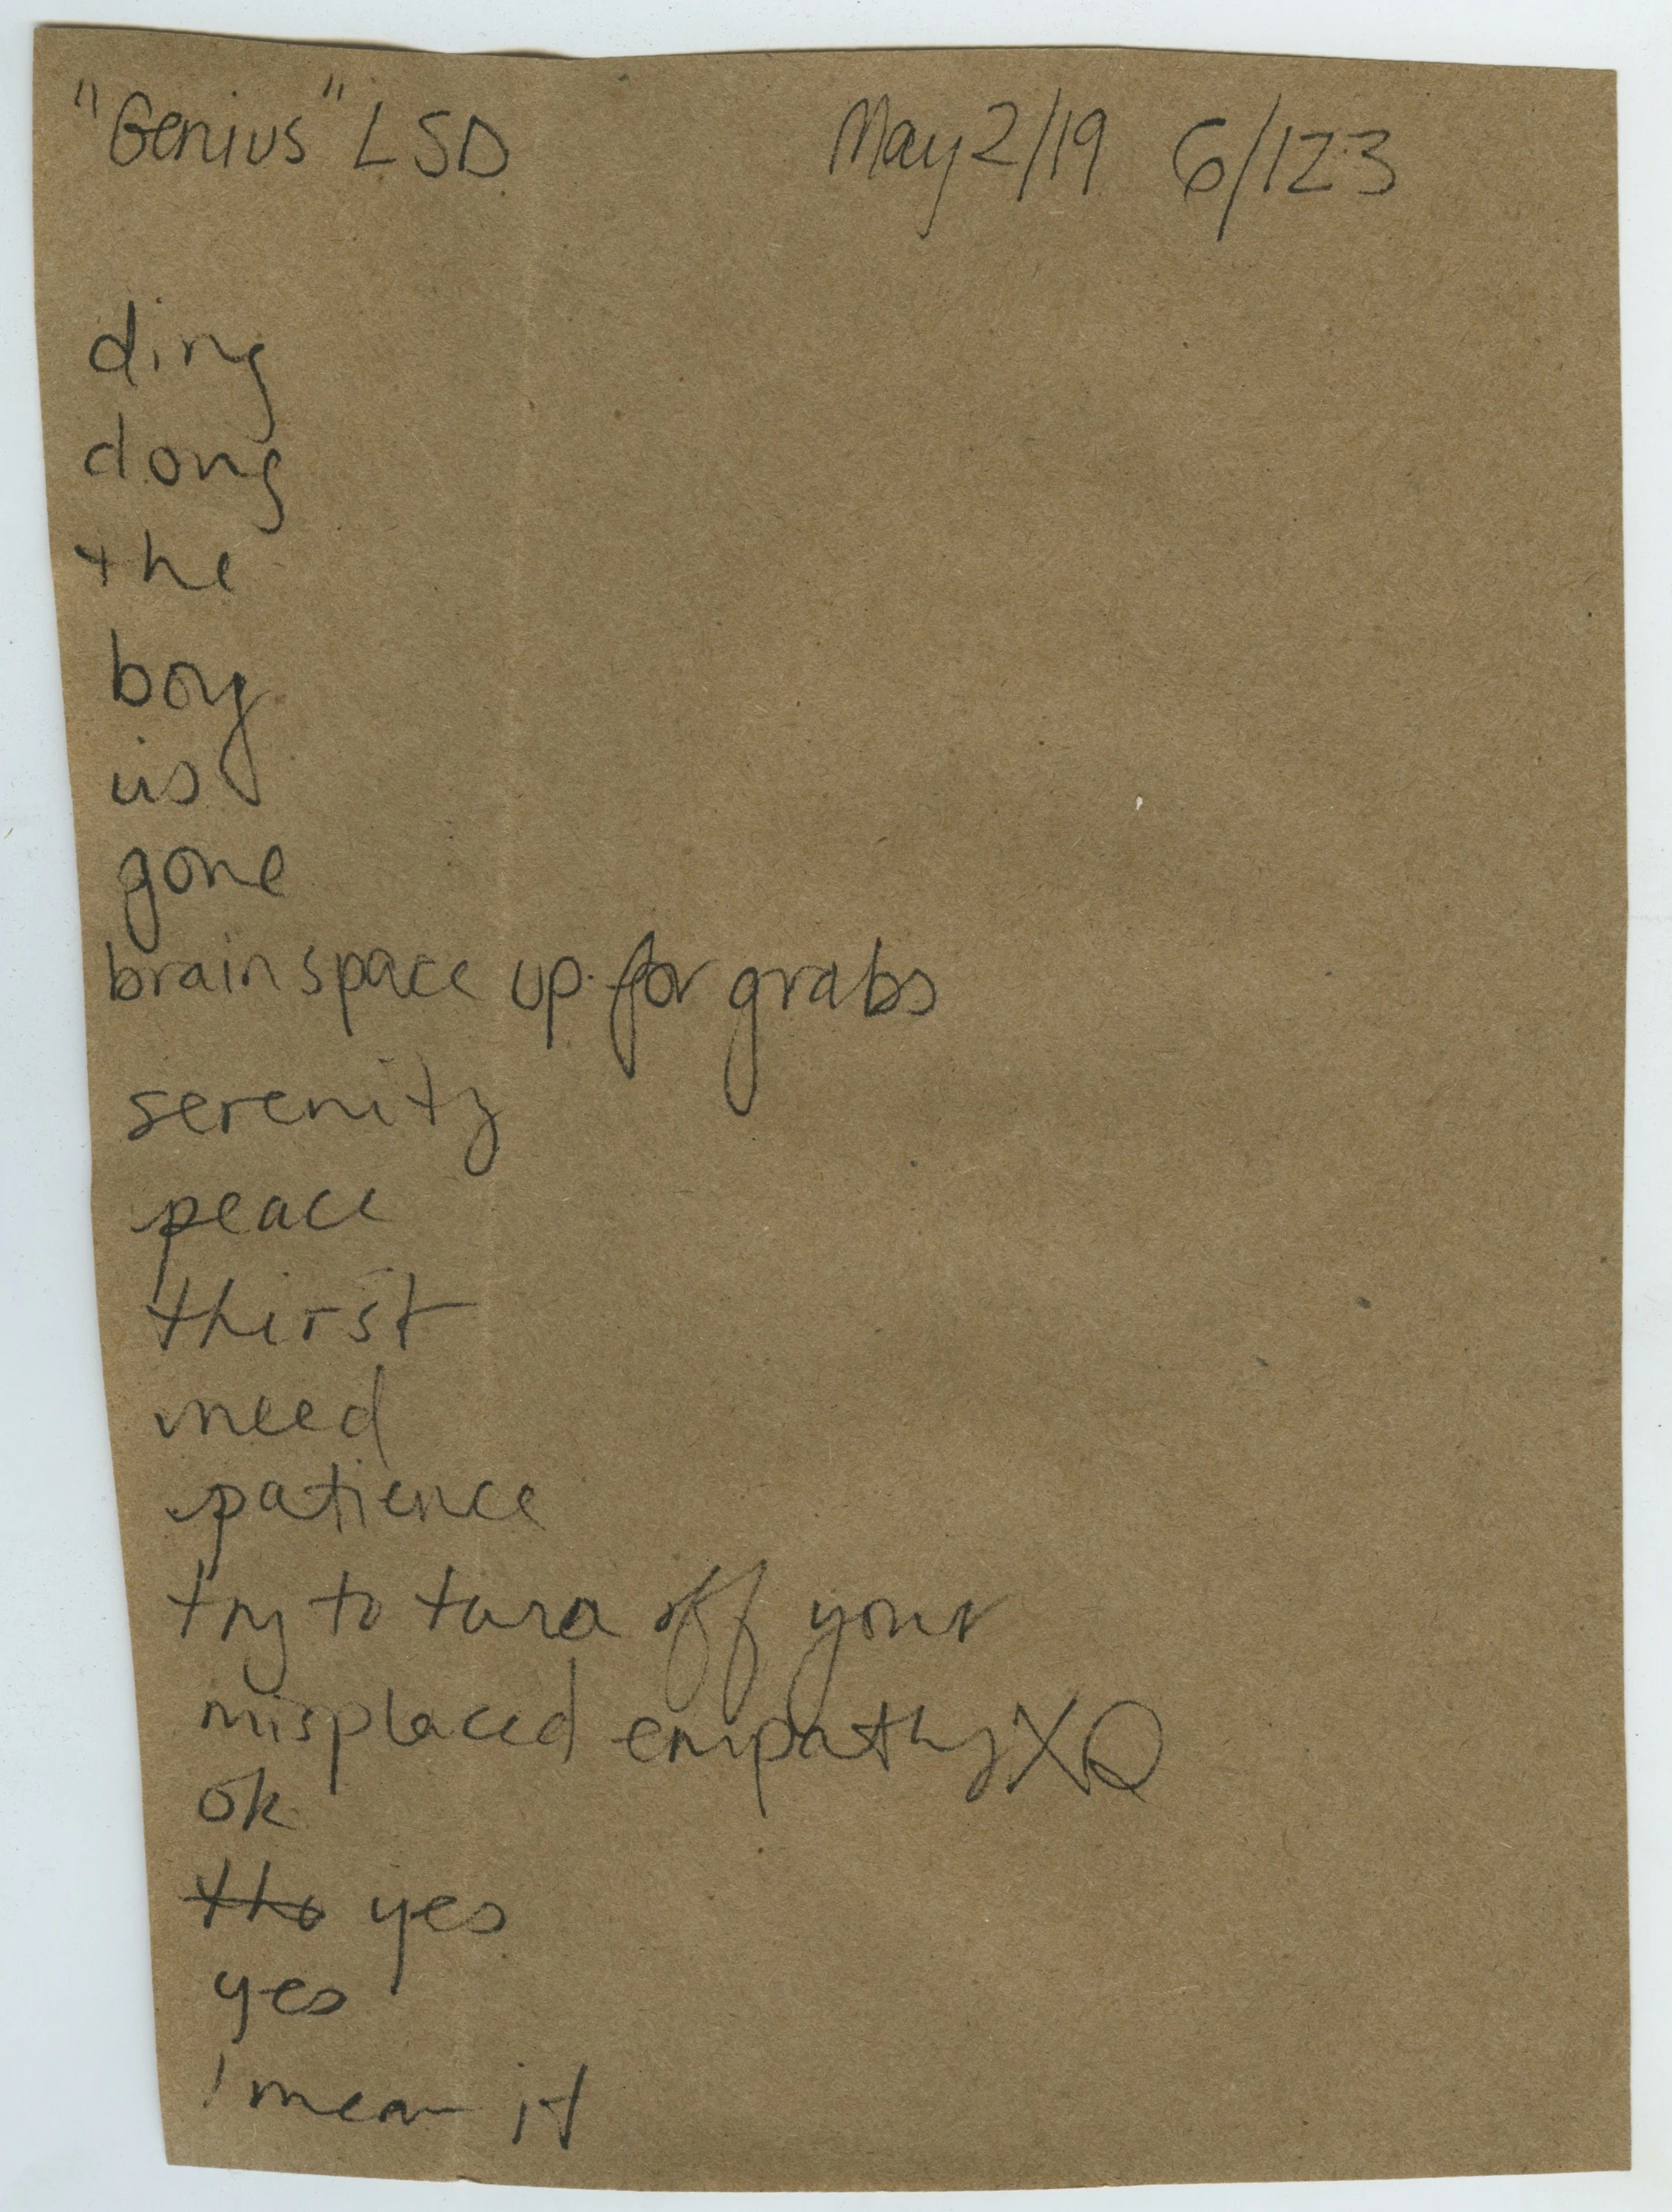 "Genius" LSD May 2/19 6/123
ding
dong
the
boy
is
gone
brainspace up for grabs
serenity
peace
thirst
need
patience
try to turn off your
misplaced empathy XO
ok
tho yes
yes
I mean it